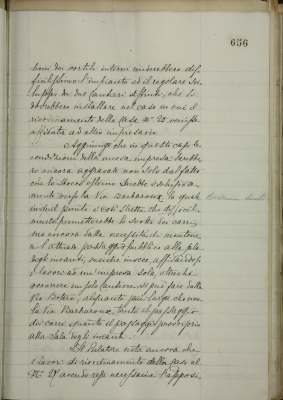 656
sioni dei cortili interni renderebbero dif-
ficilissimo l'impianto ed il regolare svi-
luppo dei due cantieri diffinti, che si
dovrebbero installare nel caso in cui il
riordinamento della casa N.º 25 venisse
affidata ad altro impresario.
Aggiunge che in questo caso le
condizioni della nuova impresa sarebbe
ro ancora aggravate non solo dal fatto
che lo sbocco esterno sarebbe esclusiva-
mente verso la Via Barbaroux, la quale
in quel punto è così stretta che difficil-
mente permetterebbe lo svolto dei carri,
ma ancora dalla necessità di mantene-
re l'attuale passaggio pubblico alla sala
degl'incanti, mentre invece, affidandosi
i lavori ad un'impresa sola, oltrechè
occorrere un solo cantiere, si può fare dalla
Via Botero, alquanto più larga che non
la Via Barbaroux, tanto il passaggio
dei carri quanto il passaggio provvisorio
alla sala degli incanti.
Il Relatore nota ancora che
i lavori di riordinamento della casa al
N.º 27 avendo resa necessaria l'apposi-